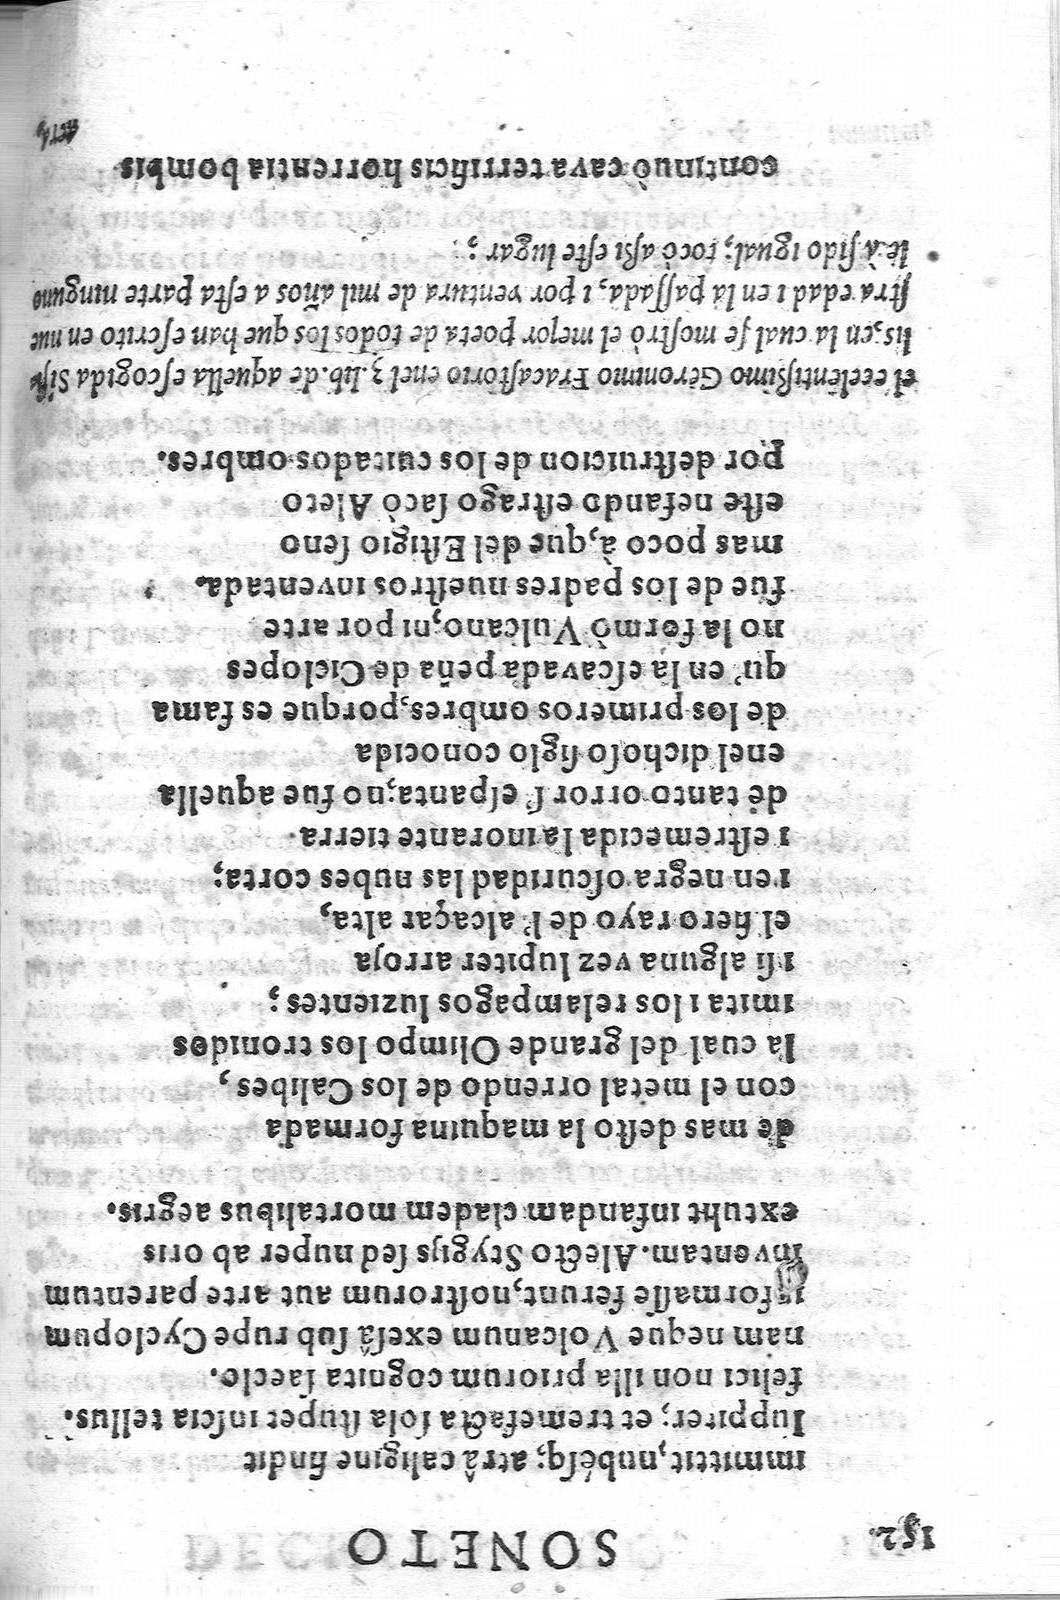 152.
SONETO
immittit, nubésq; atrâ caligine findit
Iuppiter; et tremefacta sola stupet inscia tellus.
felici non illa priorum cognita saeclo.
nam neque Volcanum exesâ sub rupe Cyclopum
formasse ferunt, nostrorum aut arte parentum
inventam. Alecto Stygijs sed nuper ab oris
extulit infandam cladem mortalibus aegris.
de mas desto la maquina formada
con el metal orrendo de los Calibes,
la cual del grande Olimpo los tronidos
imita i los relampagos luzientes;
i si alguna vez Iupiter arroja
el fiero rayo de l' alcaçar alta,
i en negra oscuridad las nubes corta;
i estremecida la inorante tierra
dè tanto orror s' espanta; no fue aquella
enel dichoso siglo conocida
de los primeros ombres, porque es fama
qu' en la escavada peña de Ciclopes
no la formò Vulcano, ni por arte
fue de los padres nuestros inventada.
mas poco à, que del Estigio seno
este nefando estrago sacò Aleto
por destruicion de los cuitados ombres.
el ecelentissimo Geronimo Fracastorio enel 3. lib. de aquella escogida Sifi
lis, en la cual se mostrò el mejor poeta de todos los que han escrito en nue
stra edad i en la passada, i por ventura de mil años a esta parte ninguno
le à sido igual; tocò assi este lugar;
continuò cava terrificis horrentia bombis
aera,